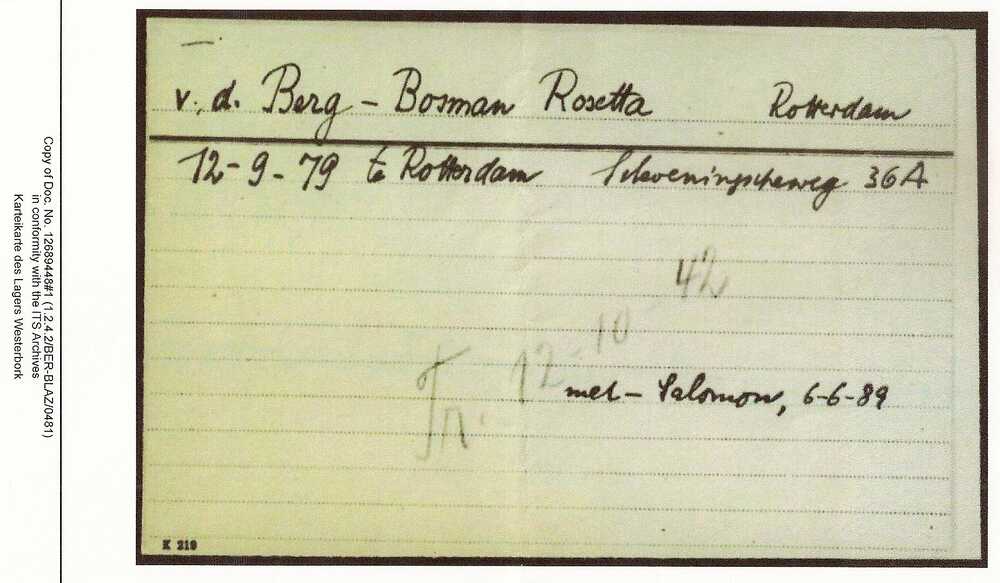 v. d. Berg - Bosman Rosetta Rotterdam
12-9-79 te Rotterdam Scheveningscheweg 36A
12-10-42
met - Salomon, 6-6-89
K 210
Copy of Doc. No. 12689448#1 (1.2.4.2/BER-BLAZ/0481)
in conformity with the ITS Archives
Karteikarte des Lagers Westerbork